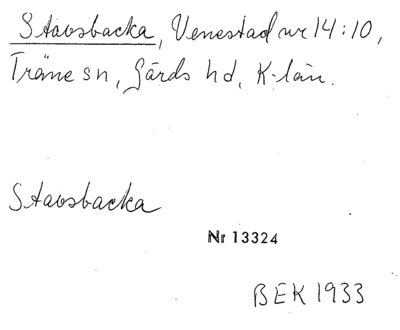 Stavsbacka, Venestad nr 14:10,
Träne sn, Gärds hd, K-län.
Stavsbacka
Nr 13324
BEK 1933